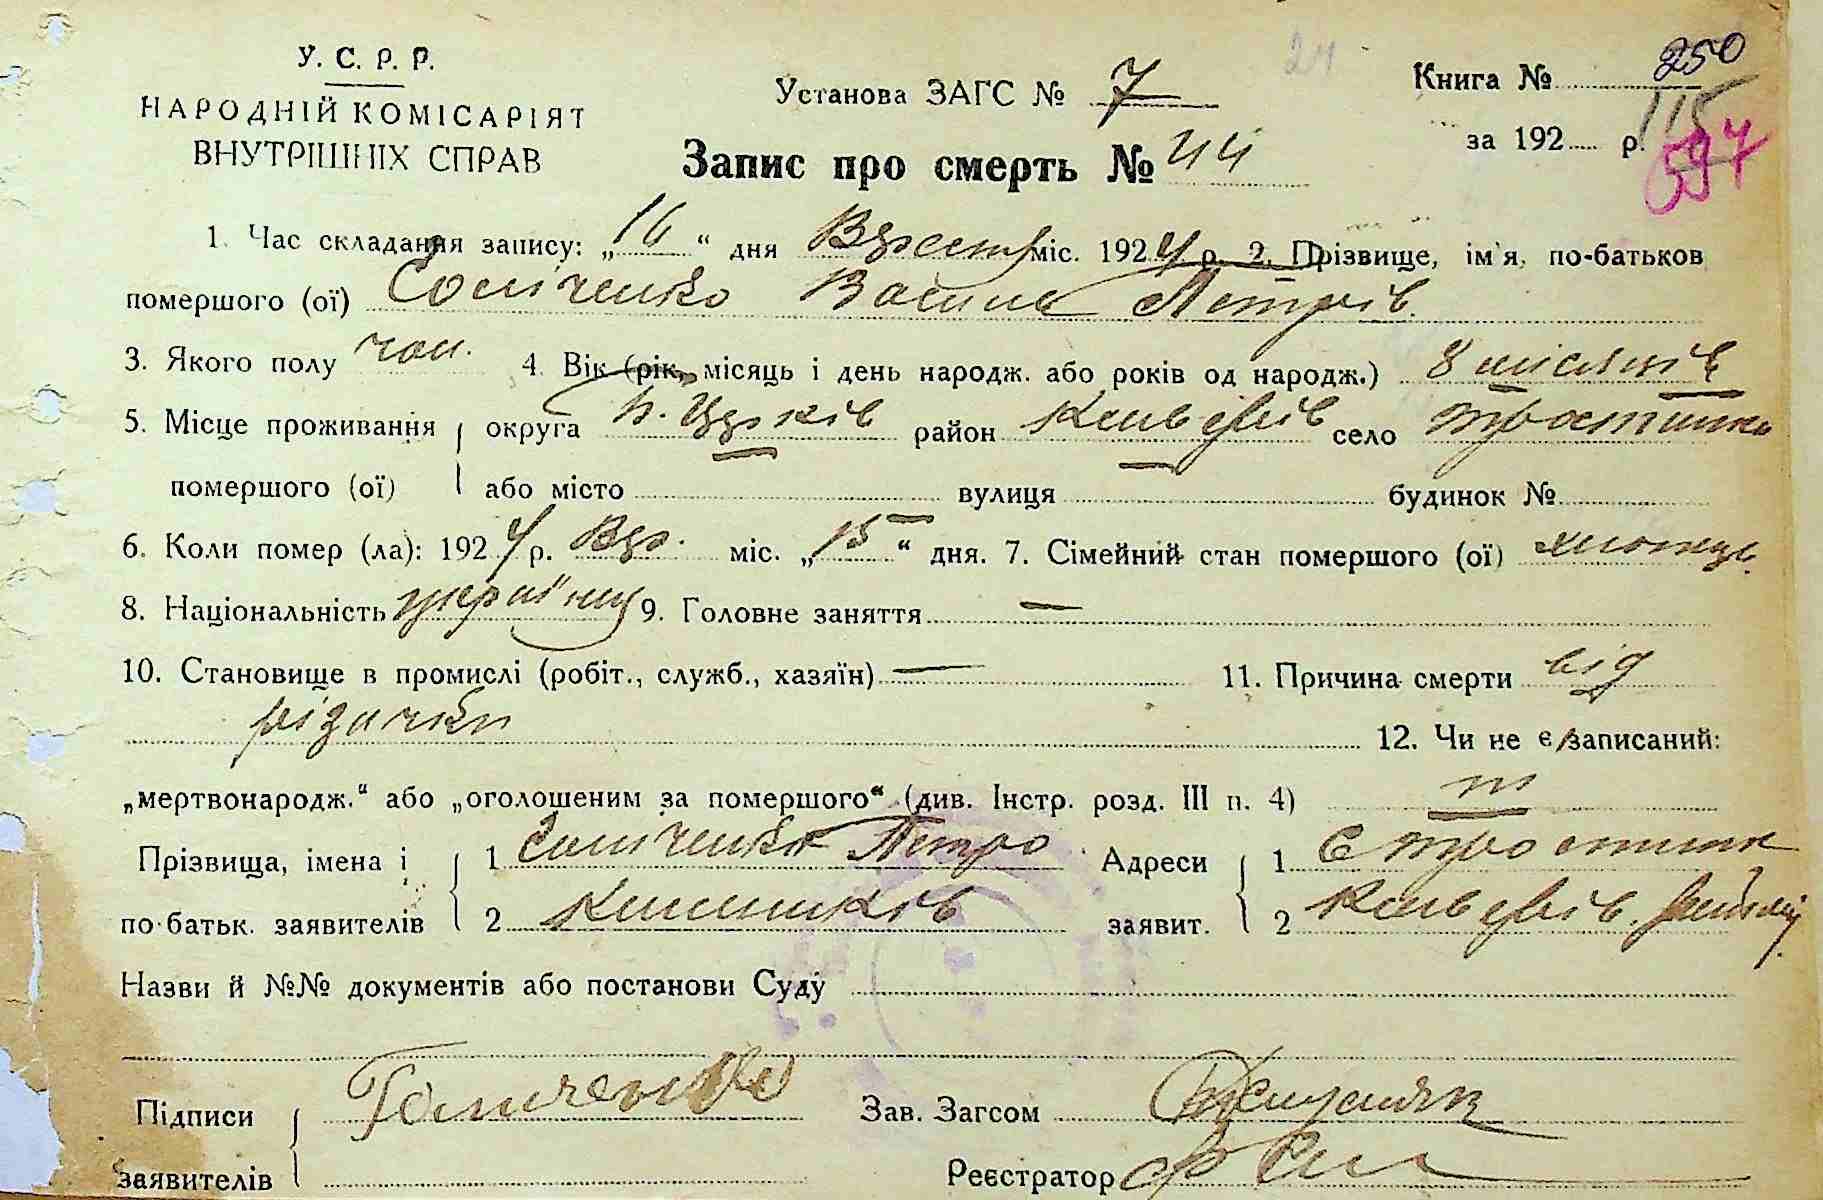 У. С. Р. Р.
НАРОДНІЙ КОМІСАРІЯТ
ВНУТРІШНІХ СПРАВ
Установа ЗАГС № 7
24
Книга № 250
115
за 192 р.
597
Запис про смерть № 44
1. Час складання запису: „16“ дня Вересня міс. 1924 р. 2. Прізвище, ім'я, по-батьков
помершого (ої) Соліченко Василь Петрів.
3. Якого полу чол. 4. Вік (рік, місяць і день народж. або років од народж.) 8 місяців
5. Місце проживання округа Б. Церків район село Тростинка
помершого (ої) або місто вулиця будинок №
6. Коли помер (ла): 1924 р. Вер. міс. „15“ дня. 7. Сімейний стан помершого (ої) хлопець
8. Національність українец 9. Головне заняття —
10. Становище в промислі (робіт., служб., хазяїн) — 11. Причина смерти від
різачки 12. Чи не є записаний:
„мертвонародж.“ або „оголошеним за помершого“ (див. Інстр. розд. III п. 4) ні
Прізвища, імена і 1 Соліченко Петро Адреси 1 С Тростинка
по-батьк. заявителів 2 заявит. 2
Назви й №№ документів або постанови Суду
Підписи
заявителів
Зав. Загсом
Реєстратор